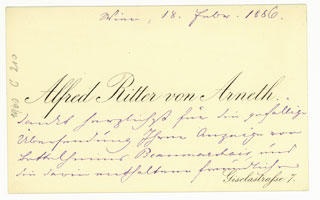 Wien, 18. Febr. 1886.
Alfred Ritter von Arneth.
dankt herzlichst für die gefällige
Übersendung Ihrer Anzeige von
Bettelheims Beaumarchais und
die darin enthaltene freundliche
Giselastraße 7.